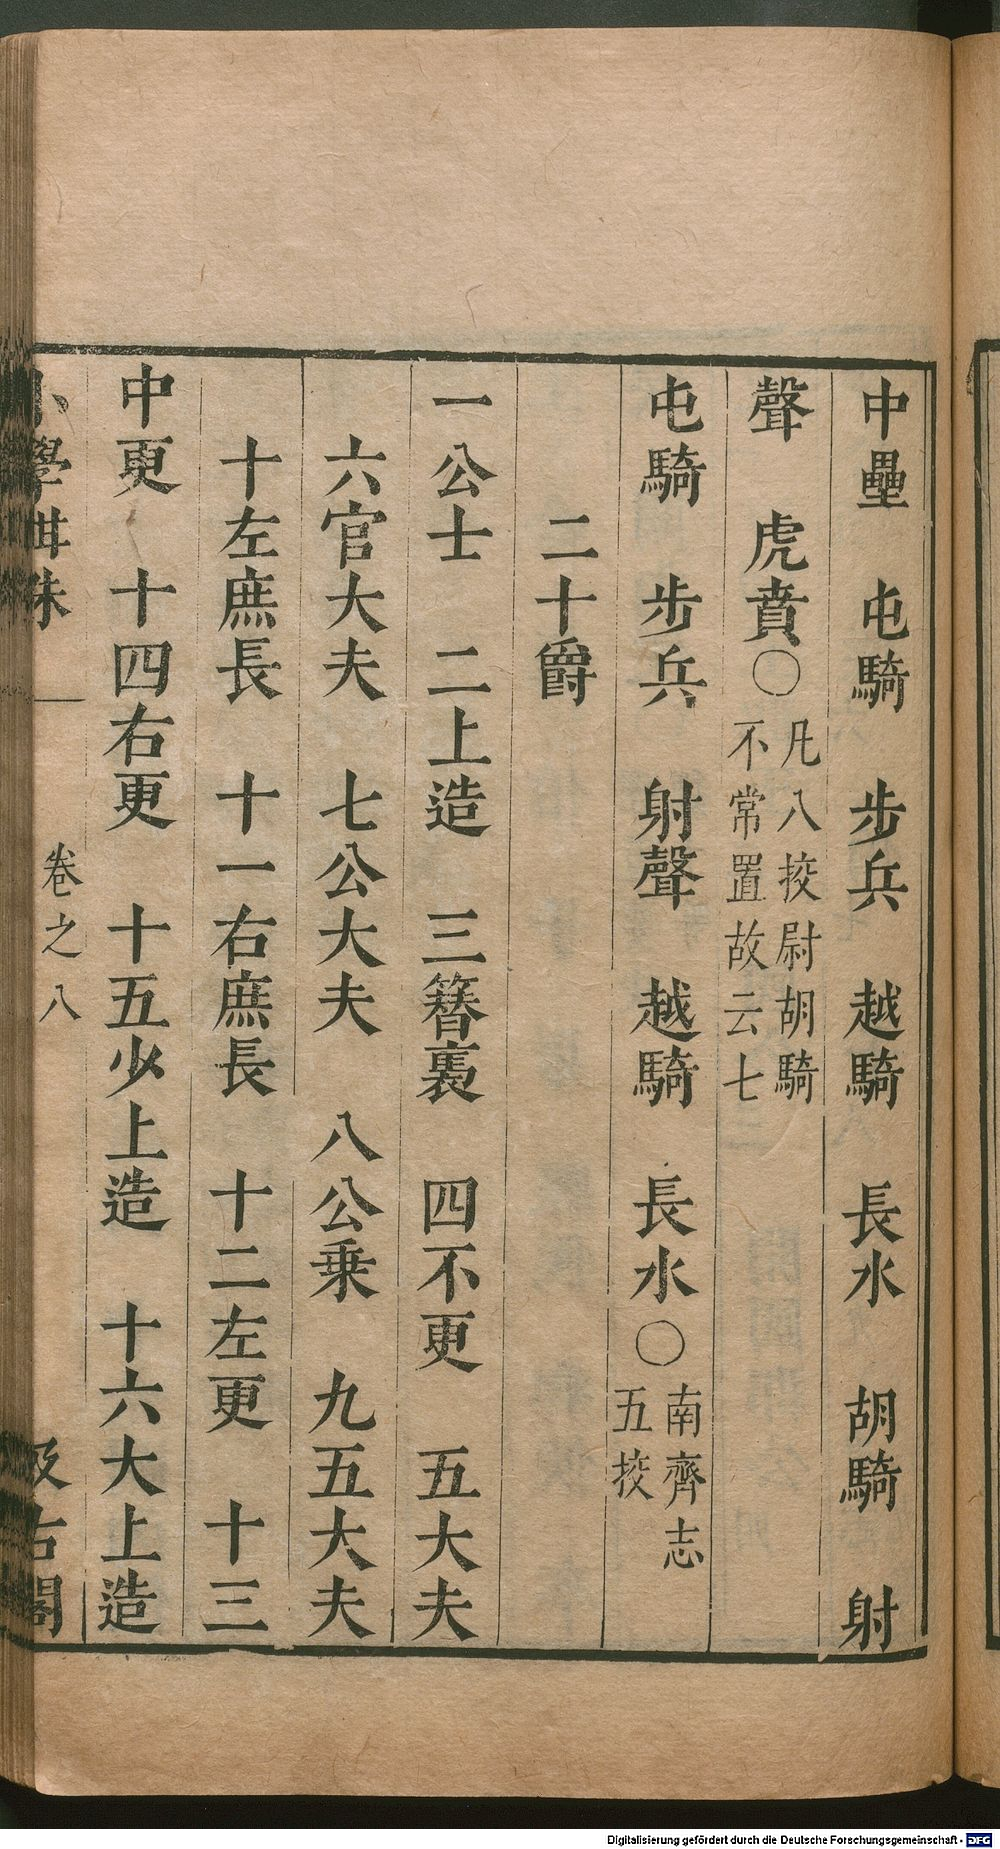 中壘　屯騎　步兵　越騎　長水　胡騎　射
聲　虎賁〇凡八挍尉胡騎
不常置故云七
屯騎　步兵　射聲　越騎　長水〇南齊志
五挍
二十爵
一公士　二上造　三簪裊　四不更　五大夫
六官大夫　七公大夫　八公乗　九五大夫
十左庶長　十一右庶長　十二左更　十三
中更　十四右更　十五少上造　十六大上造
小學紺珠　卷之八　汲古閣
Digitalisierung gefördert durch die Deutsche Forschungsgemeinschaft - DFG